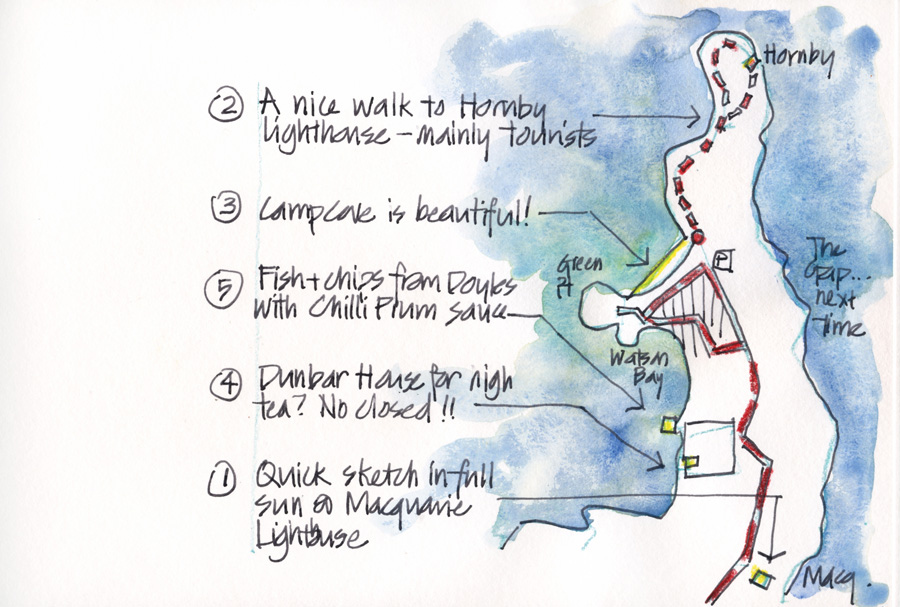 ② A nice walk to Hornby
Lighthouse – mainly tourists
③ Camp Cove is beautiful!
⑤ Fish + chips from Doyles
with Chilli Plum sauce
④ Dunbar House for high
tea? No closed!!
① Quick sketch in full
sun @ Macquarie
Lighthouse
Hornby
P
Green
Pt
Watson
Bay
The
Gap...
next
time
Macq.